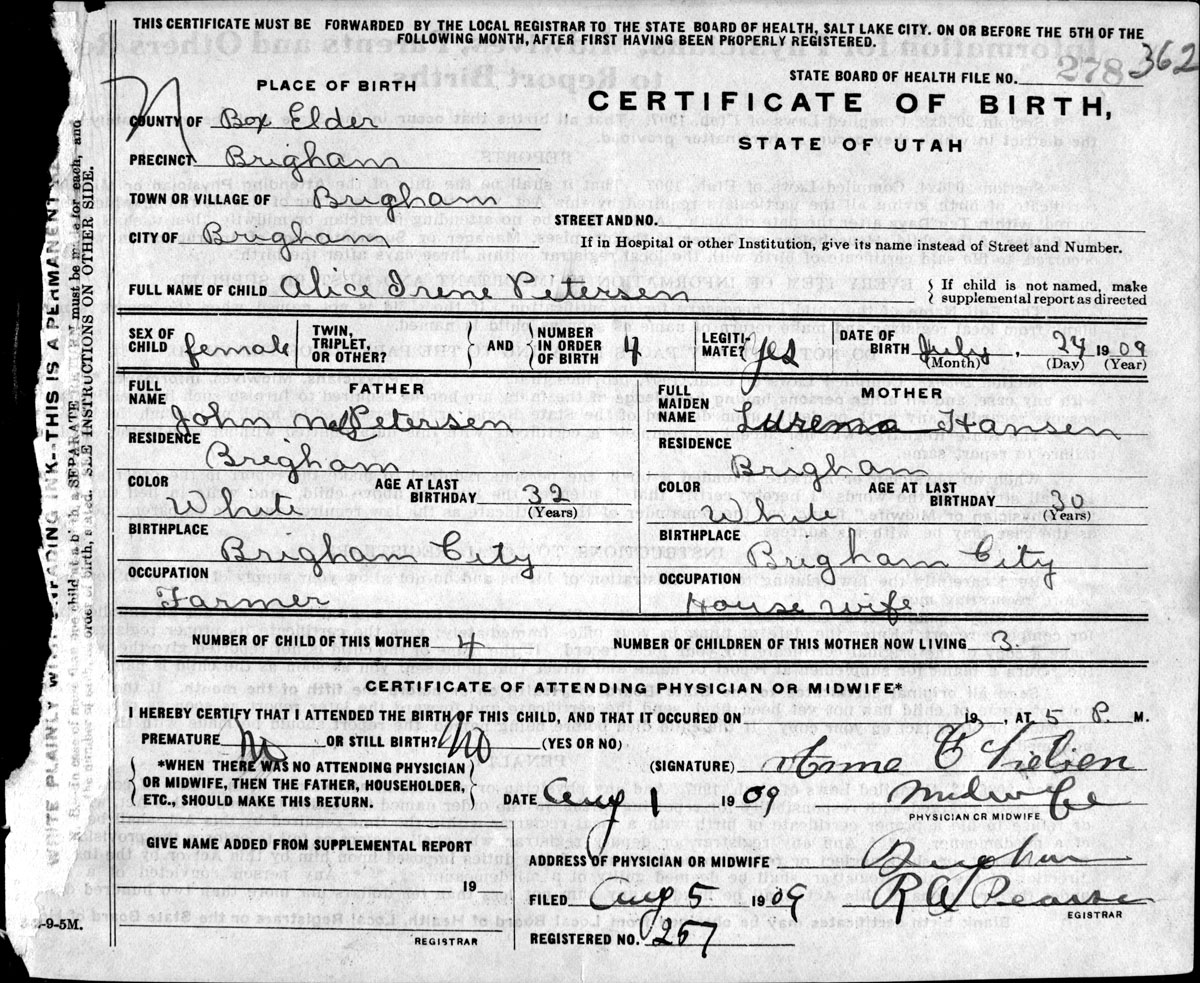 THIS CERTIFICATE MUST BE FORWARDED BY THE LOCAL REGISTRAR TO THE STATE BOARD OF HEALTH, SALT LAKE CITY. ON OR BEFORE THE 5TH OF THE
FOLLOWING MONTH, AFTER FIRST HAVING BEEN PROPERLY REGISTERED.
STATE BOARD OF HEALTH FILE NO. 278 362
PLACE OF BIRTH
CERTIFICATE OF BIRTH,
STATE OF UTAH
COUNTY OF Box Elder
PRECINCT Brigham
TOWN OR VILLAGE OF Brigham
STREET AND NO.
CITY OF Brigham
If in Hospital or other Institution, give its name instead of Street and Number.
FULL NAME OF CHILD Alice Irene Petersen
{ If child is not named, make
supplemental report as directed
SEX OF CHILD female
TWIN, TRIPLET, OR OTHER?
{ AND }
NUMBER IN ORDER OF BIRTH 4
LEGITI-MATE? yes
DATE OF BIRTH July, 27 1909
(Month) (Day) (Year)
FATHER
FULL NAME John Petersen
RESIDENCE
Brigham
COLOR White
AGE AT LAST BIRTHDAY 32
(Years)
BIRTHPLACE
Brigham City
OCCUPATION
Farmer
MOTHER
FULL MAIDEN NAME Hansen
RESIDENCE
Brigham
COLOR White
AGE AT LAST BIRTHDAY 30
(Years)
BIRTHPLACE
Brigham City
OCCUPATION
House wife
NUMBER OF CHILD OF THIS MOTHER 4
NUMBER OF CHILDREN OF THIS MOTHER NOW LIVING 3.
CERTIFICATE OF ATTENDING PHYSICIAN OR MIDWIFE*
I HEREBY CERTIFY THAT I ATTENDED THE BIRTH OF THIS CHILD, AND THAT IT OCCURED ON 19, AT 5 P. M.
PREMATURE No OR STILL BIRTH? No (YES OR NO)
{ *WHEN THERE WAS NO ATTENDING PHYSICIAN
OR MIDWIFE, THEN THE FATHER, HOUSEHOLDER,
ETC., SHOULD MAKE THIS RETURN. }
(SIGNATURE)
DATE Aug 1 1909
Midwife
PHYSICIAN OR MIDWIFE
GIVE NAME ADDED FROM SUPPLEMENTAL REPORT
19
REGISTRAR
ADDRESS OF PHYSICIAN OR MIDWIFE Brigham
FILED Aug 5 1909
EGISTRAR
REGISTERED NO. 257
-9-5M.
WRITE PLAINLY WITH UNFADING INK--THIS IS A PERMANENT
SEPARATE must be made for each, and
order of birth, stated. SEE INSTRUCTIONS ON OTHER SIDE.